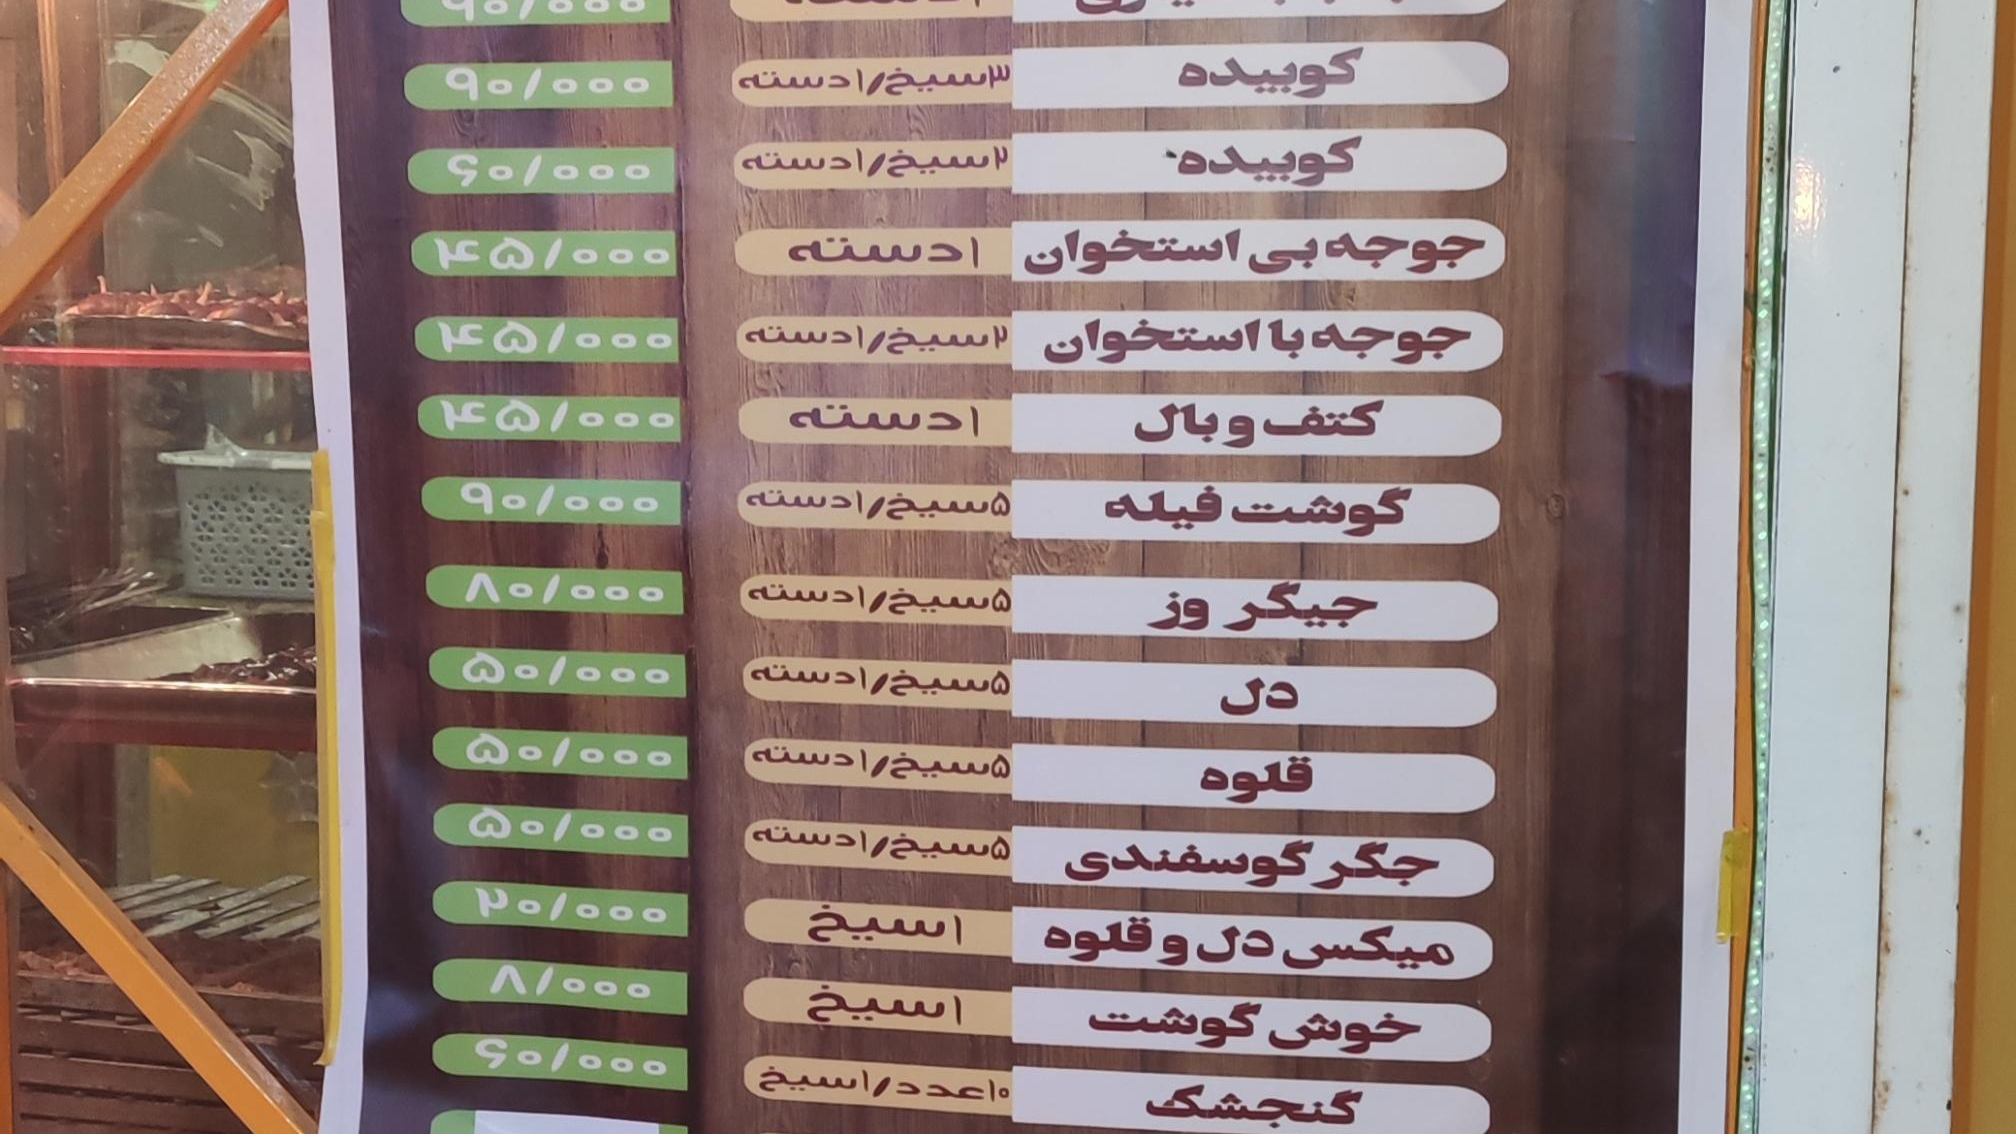 کوبیده ۳سیخ/۱دسته ۹۰/۰۰۰
کوبیده ۲سیخ/۱دسته ۶۰/۰۰۰
جوجه بی استخوان ۱دسته ۴۵/۰۰۰
جوجه با استخوان ۲سیخ/۱دسته ۴۵/۰۰۰
کتف و بال ۱دسته ۴۵/۰۰۰
گوشت فیله ۵سیخ/۱دسته ۹۰/۰۰۰
جیگر وز ۵سیخ/۱دسته ۸۰/۰۰۰
دل ۵سیخ/۱دسته ۵۰/۰۰۰
قلوه ۵سیخ/۱دسته ۵۰/۰۰۰
جگر گوسفندی ۵سیخ/۱دسته ۵۰/۰۰۰
میکس دل و قلوه ۱سیخ ۲۰/۰۰۰
خوش گوشت ۱سیخ ۸/۰۰۰
گنجشک ۱۰عدد/۱سیخ ۶۰/۰۰۰